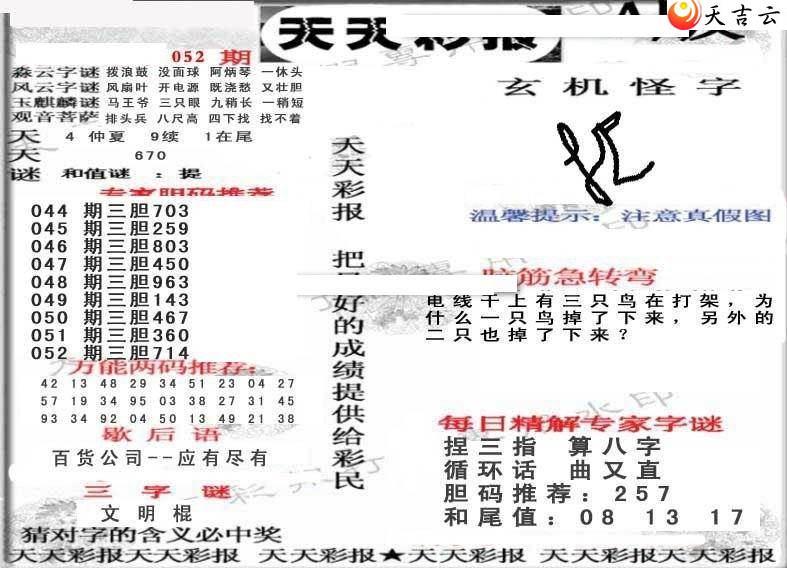 天天彩报
天吉云
052 期
森云字谜 拨浪鼓 没面球 阿炳琴 一休头
风云字谜 风扇叶 开电源 既浇愁 又壮胆
玉麒麟谜 马王爷 三只眼 九稍长 一稍短
观音菩萨 排头兵 八尺高 四下找 找不着
天 4 仲夏 9续 1在尾
天 670
谜 和值谜 :提
专家胆码推荐
044 期三胆703
045 期三胆259
046 期三胆803
047 期三胆450
048 期三胆963
049 期三胆143
050 期三胆467
051 期三胆360
052 期三胆714
万能两码推荐:
42 13 48 29 34 51 23 04 27
57 19 34 95 03 38 27 31 45
93 34 92 04 50 13 49 21 38
歇后语
百货公司--应有尽有
三字谜
文明棍
猜对字的含义必中奖
天天彩报 把最好的成绩提供给彩民
玄机怪字
温馨提示:注意真假图
脑筋急转弯
电线干上有三只鸟在打架,为
什么一只鸟掉了下来,另外的
二只也掉了下来?
每日精解专家字谜
捏三指 算八字
循环话 曲又直
胆码推荐:257
和尾值:08 13 17
天天彩报天天彩报 天天彩报★天天彩报 天天彩报天天彩报